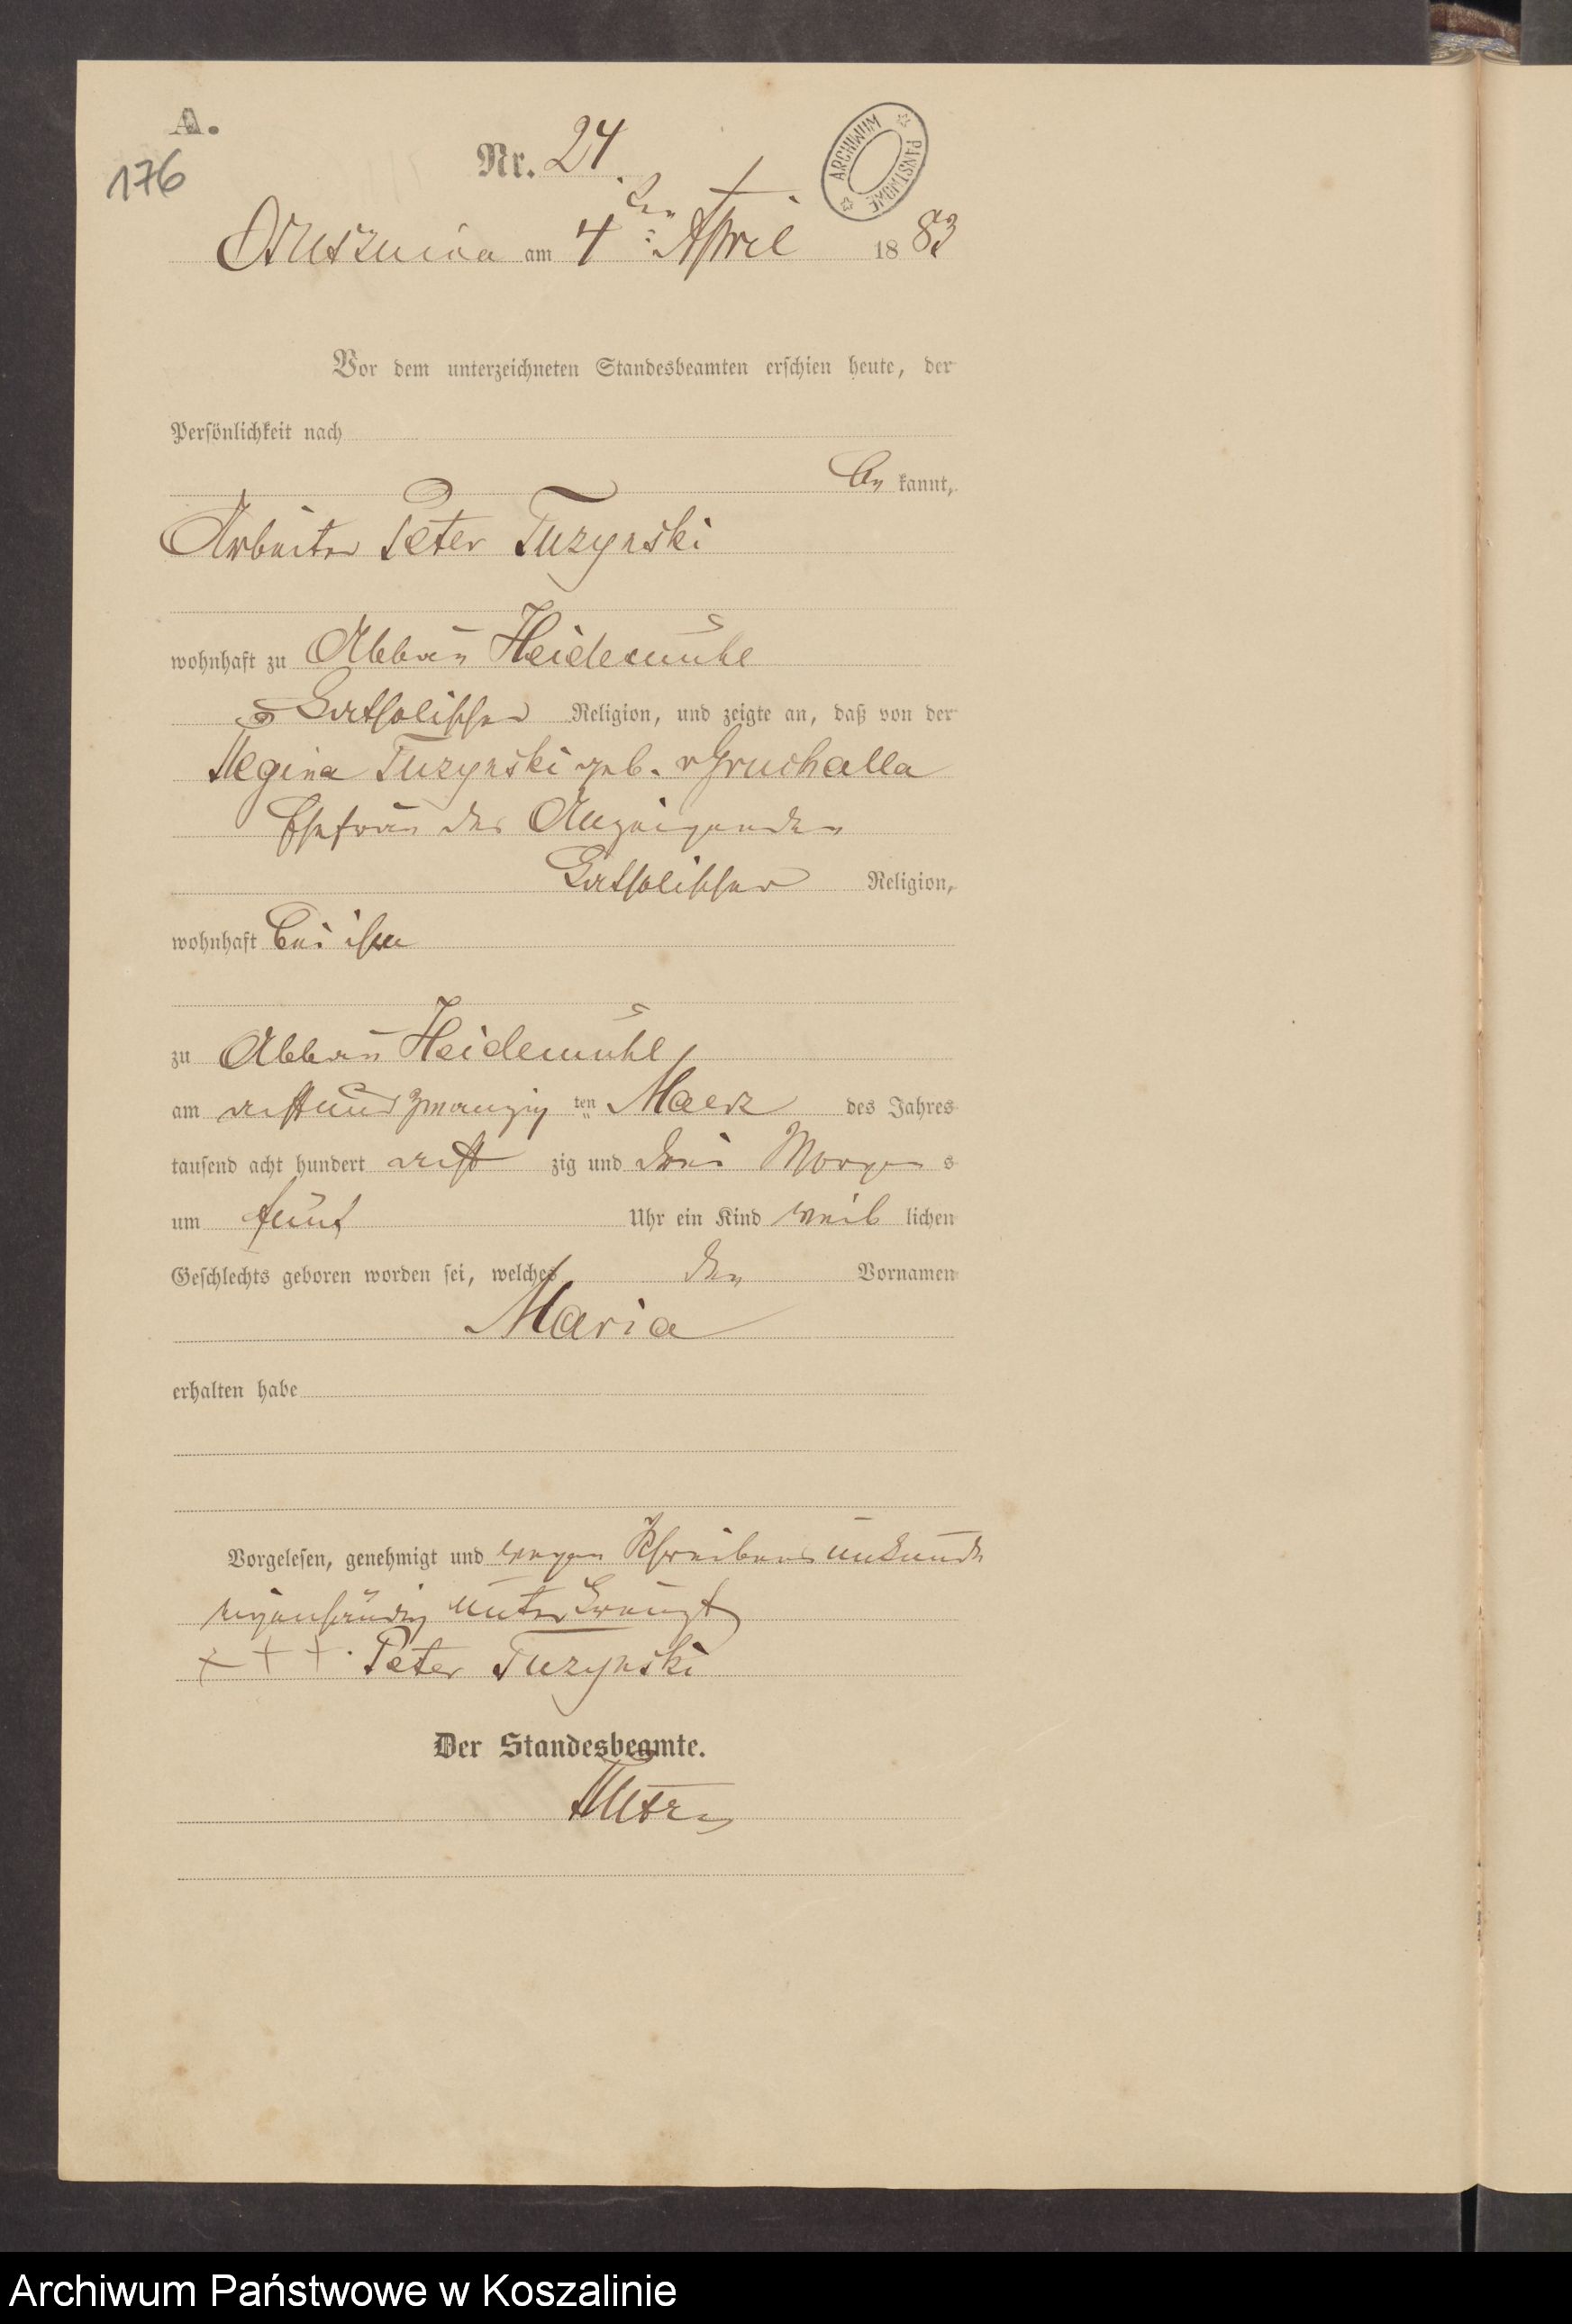 A.
176
Nr. 24.
ARCHIWUM PAŃSTWOWE
am 4ten April 1883
Vor dem unterzeichneten Standesbeamten erschien heute, der
Persönlichkeit nach
be kannt,
Arbeiter Peter Tuzynski
wohnhaft zu Abbau Heidemühl
katholischer Religion, und zeigte an, daß von der
Regina Tuzynski geb. v Gruchalla
Ehefrau des Anzeigenden
katholischer Religion,
wohnhaft bei ihm
zu Abbau Heidemühl
am acht und zwanzig ten Maerz des Jahres
tausend acht hundert acht zig und drei Morgen s
um fünf Uhr ein Kind weib lichen
Geschlechts geboren worden sei, welches den Vornamen
Maria
erhalten habe
Vorgelesen, genehmigt und wegen Schreibensunkunde
eigenhändig unterkreuzt
+ + + Peter Tuzynski
Der Standesbeamte.
Archiwum Państwowe w Koszalinie